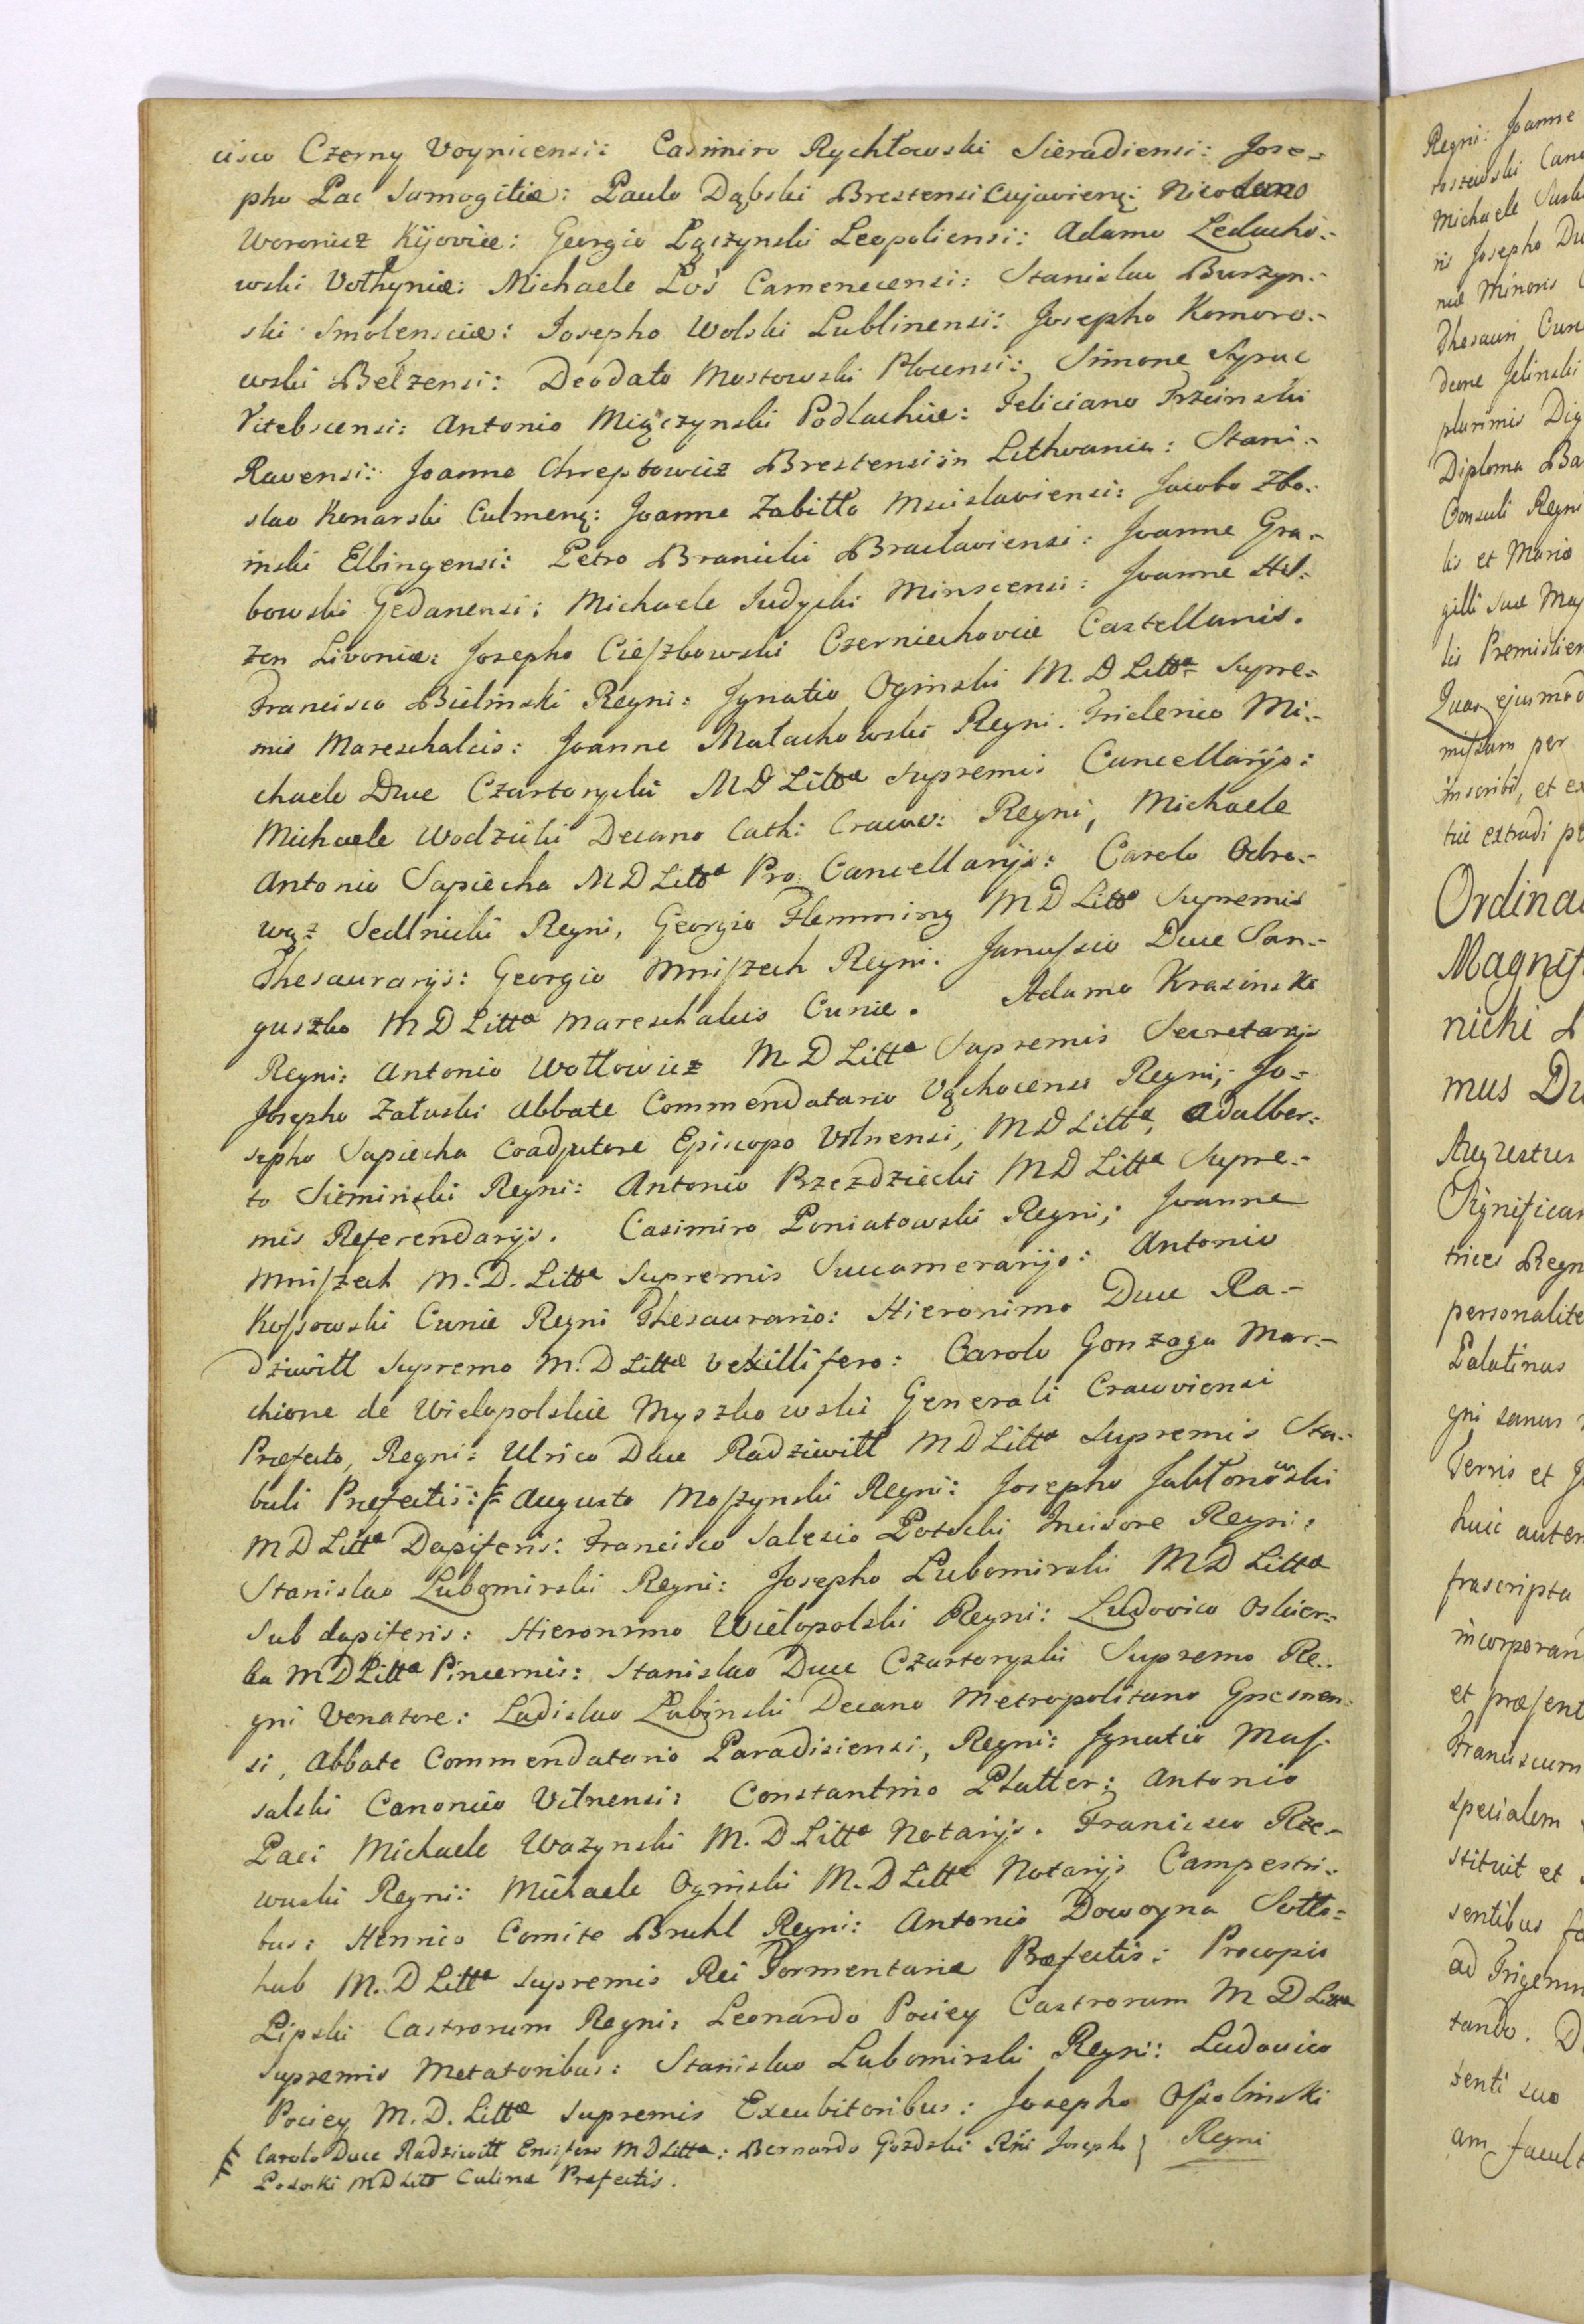 cisco Czerny Voynicensi: Casimiro Rychłowski Sieradiensi: Jose-
pho Pac Samogitiæ: Paulo Dąbski Brestensi Cujavienq: Nicodemo
Woronicz Kijoviæ: Georgio Łączynski Leopoliensi: Adamo Leducho-
wski Volhyniæ: Michaele Łoś Camenecensi: Stanislao Burzyn-
ski Smolensciæ: Josepho Wolski Lublinensi: Josepho Komoro-
wski Bełzensi: Deodato Mostowski Płocensi: Simone Syruc
Vitebscensi: Antonio Miączynski Podlachiæ: Feliciano Trzcinski
Ravensi: Joanne Chreptowicz Brestensi in Lithvania: Stani-
slao Konarski Culmenq: Joanne Zabiłło Mscislaviensi: Jacobo Zbo-
inski Elbingensi: Petro Branicki Braclaviensi: Joanne Gra-
bowski Gedanensi: Michaele Judycki Minscensi: Joanne Hil-
zen Livoniæ: Josepho Cieszkowski Czerniechoviæ Castellanis.
Francisco Bielinski Regni: Ignatio Oginski M. D Littæ Supre-
mis Mareschalcis: Joanne Małachowski Regni. Friderico Mi-
chaele Duce Czartoryski M D Littæ Supremis Cancellarijs:
Michaele Wodzicki Decano Cath: Cracov: Regni, Michaele
Antonio Sapiecha M D Littæ Pro Cancellarijs: Carolo Odro-
wąż Sedlnicki Regni, Georgio Flemming M D Littæ Supremis
Thesaurarijs: Georgio Mniszech Regni: Janussio Duce San-
guszko M D Littæ Mareschalcis Curiæ. Adamo Krasinski
Regni: Antonio Wołłowicz M D Littæ Supremis Secretarijs
Josepho Załuski Abbate Commendatario Vąchocensi Regni, Jo-
sepho Sapiecha Coadjutore Episcopo Vilnensi, M D Littæ, Adalber-
to Siemiński Regni: Antonio Przezdziecki M D Littæ Supre-
mis Referendarijs. Casimiro Poniatowski Regni; Joanne
Mniszech M. D. Littæ Supremis Succamerarijs: Antonio
Kossowski Curiæ Regni Thesaurario: Hieronimo Duce Ra-
dziwiłł Supremo M. D Littæ Vexillifero: Carolo Gonzaga Mar-
chione de Wielopolskie Myszkowski Generali Cracoviensi
Præfecto, Regni: Ulrico Duce Radziwiłł M D Littæ Supremis Sta-
buli Præfectis: Augusto Moszynski Regni: Josepho Jabłonowski
M D Littæ Dapiferis: Francisco Salesio Potocki Incisore Regni:
Stanislao Lubomirski Regni: Josepho Lubomirski M D Littæ
Sub dapiferis: Hieronimo Wielopolski Regni: Ludovico Oskier-
ka M D Littæ Pincernis: Stanislao Duce Czartoryski Supremo Re-
gni Venatore: Ladislao Łubinski Decano Metropolitano Gnesnen-
si, Abbate Commendatario Paradisiensi, Regni: Ignatio Mas-
salski Canonico Vilnensi: Constantino Platter: Antonio
Paci Michaele Wazynski M. D Littæ Notarijs. Francisco Rze-
wuski Regni: Michaele Oginski M. D Littæ Notarijs Campestri-
bus: Henrico Comite Bruhl Regni: Antonio Dowoyna Sołło-
hub M. D Littæ Supremis Rei Tormentariæ Præfectis: Procopio
Lipski Castrorum Regni: Leonardo Pociey Castrorum M D Littæ
Supremis Metatoribus: Stanislao Lubomirski Regni: Ludovico
Pociey M. D. Littæ Supremis Excubitoribus: Josepho Ossolinski
Carolo Duce Radziwiłł Ensifero M D Littæ: Bernardo Gozdzki Rñi Josepho
Regni
Potocki M D Littæ Culinæ Præfectis.
Regni: Joanne
Michaele
ris Josepho Du
niæ Minoris
Thesauri Curi
plurimis Dig
Diploma
Consuli Regni
lis et Mario
gilli suæ Maj
lis Premislien
Quas ejusmod
missam per
inscribi, et ex
tui extradi
Ordina
Magnif
nicki
mus Du
Augustus
Significa
trices Regn
personalite
Palatinus
gni sanus
Terris et
huic autem
frascripta
incorporan
et præsent
Franciscum
specialem
stituit et
sentibus
ad
tando. D
senti suo
am facult